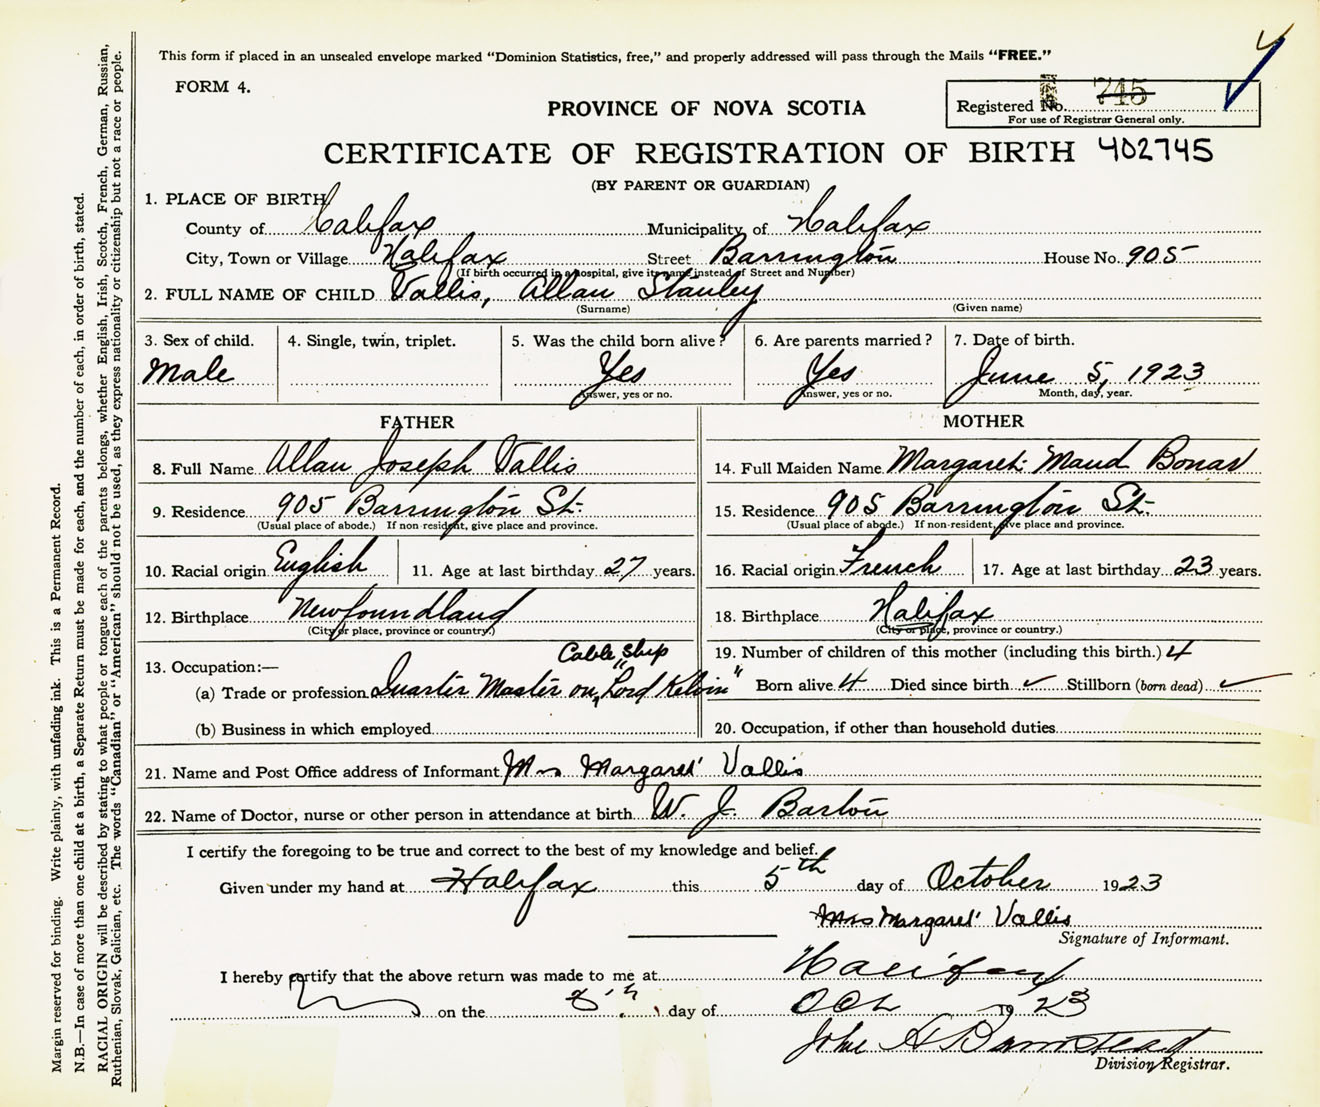 This form if placed in an unsealed envelope marked “Dominion Statistics, free,” and properly addressed will pass through the Mails “FREE.”
FORM 4.
PROVINCE OF NOVA SCOTIA
Registered No. 745
For use of Registrar General only.
CERTIFICATE OF REGISTRATION OF BIRTH 402745
(BY PARENT OR GUARDIAN)
1. PLACE OF BIRTH
County of Halifax Municipality of Halifax
City, Town or Village Halifax Street Barrington House No. 905
(If birth occurred in a hospital, give its name instead of Street and Number)
2. FULL NAME OF CHILD Vallis, Allan Stanley
(Surname) (Given name)
3. Sex of child. 4. Single, twin, triplet. 5. Was the child born alive? 6. Are parents married? 7. Date of birth.
Male Yes Yes June 5, 1923
Answer, yes or no. Answer, yes or no. Month, day, year.
FATHER MOTHER
8. Full Name Allan Joseph Vallis 14. Full Maiden Name Margaret Maud Bonar
9. Residence 905 Barrington St. 15. Residence 905 Barrington St.
(Usual place of abode.) If non-resident, give place and province. (Usual place of abode.) If non-resident, give place and province.
10. Racial origin English 11. Age at last birthday 27 years. 16. Racial origin French 17. Age at last birthday 23 years.
12. Birthplace Newfoundland 18. Birthplace Halifax
(City or place, province or country.) (City or place, province or country.)
13. Occupation:— Cable Ship 19. Number of children of this mother (including this birth.) 4
(a) Trade or profession Quarter Master on "Lord Kelvin" Born alive 4 Died since birth ✓ Stillborn (born dead) ✓
(b) Business in which employed 20. Occupation, if other than household duties
21. Name and Post Office address of Informant Mrs Margaret Vallis
22. Name of Doctor, nurse or other person in attendance at birth W. J. Barton
I certify the foregoing to be true and correct to the best of my knowledge and belief.
Given under my hand at Halifax this 5th day of October 1923
Mrs Margaret Vallis
Signature of Informant.
I hereby certify that the above return was made to me at Halifax
on the day of Oct 1923
John A Barnstead
Division Registrar.
Margin reserved for binding. Write plainly, with unfading ink. This is a Permanent Record.
N.B.—In case of more than one child at a birth, a Separate Return must be made for each, and the number of each, in order of birth, stated.
RACIAL ORIGIN will be described by stating to what people or tongue each of the parents belongs, whether English, Irish, Scotch, French, German, Russian,
Ruthenian, Slovak, Galician, etc. The words “Canadian” or “American” should not be used, as they express nationality or citizenship but not a race or people.